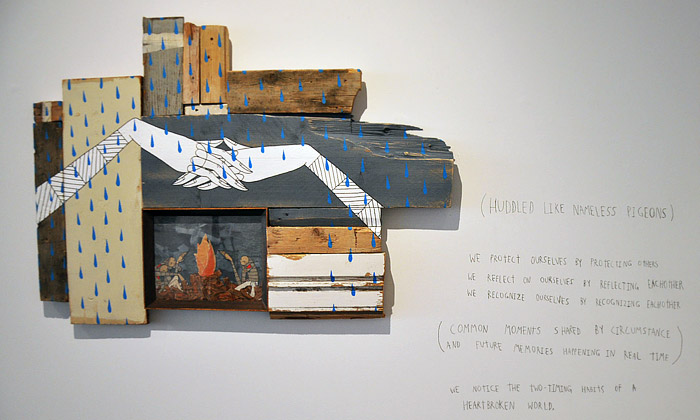 (HUDDLED LIKE NAMELESS PIGEONS)
WE PROTECT OURSELVES BY PROTECTING OTHERS
WE REFLECT ON OURSELVES BY REFLECTING EACHOTHER
WE RECOGNIZE OURSELVES BY RECOGNIZING EACHOTHER
(COMMON MOMENTS SHARED BY CIRCUMSTANCE
AND FUTURE MEMORIES HAPPENING IN REAL TIME)
WE NOTICE THE TWO-TIMING HABITS OF A
HEARTBROKEN WORLD.